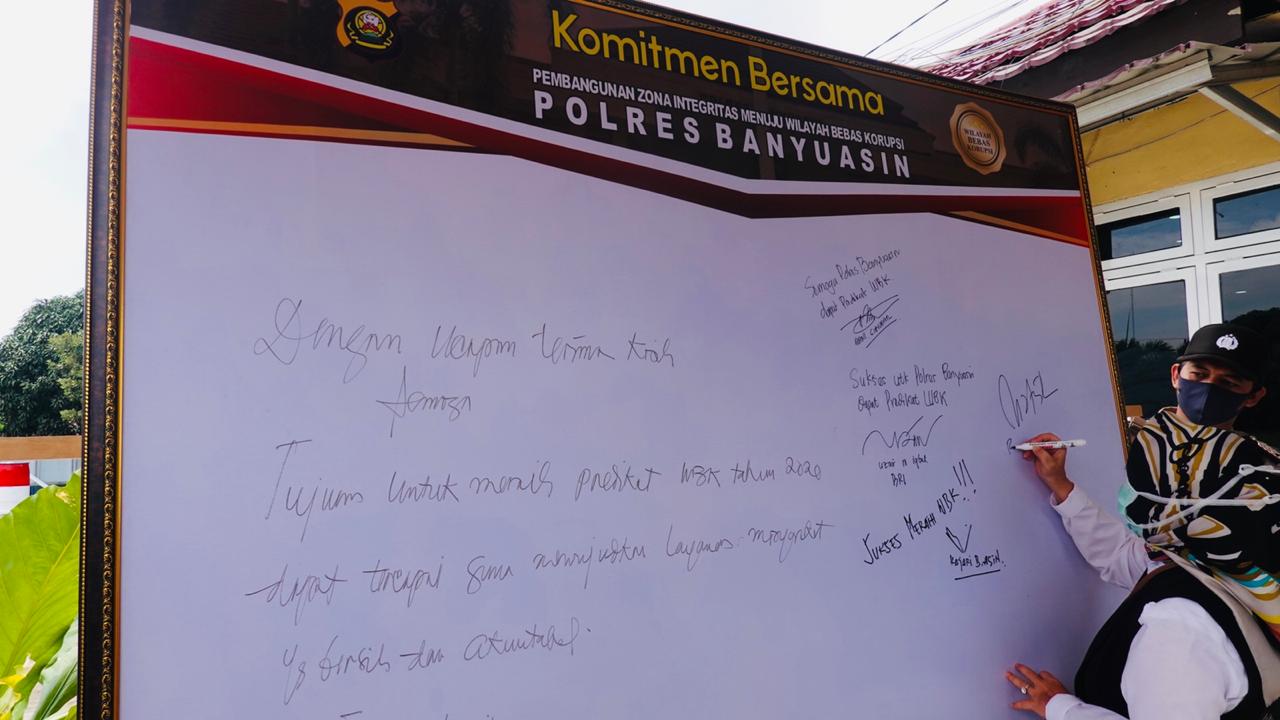 Komitmen Bersama
PEMBANGUNAN ZONA INTEGRITAS MENUJU WILAYAH BEBAS KORUPSI
POLRES BANYUASIN
WILAYAH
BEBAS
KORUPSI
Dengan Ucapan terima kasih
Semoga
Tujuan Untuk meraih predikat WBK tahun 2020
dapat tercapai guna mewujudkan layanan masyarakat
yg bersih dan akuntabel.
Semoga Polres Banyuasin
dapat Predikat WBK
Sukses utk Polres Banyuasin
dapat Predikat WBK
BRI
SUKSES MERAIH WBK !!!
Kajari B.ASIN.